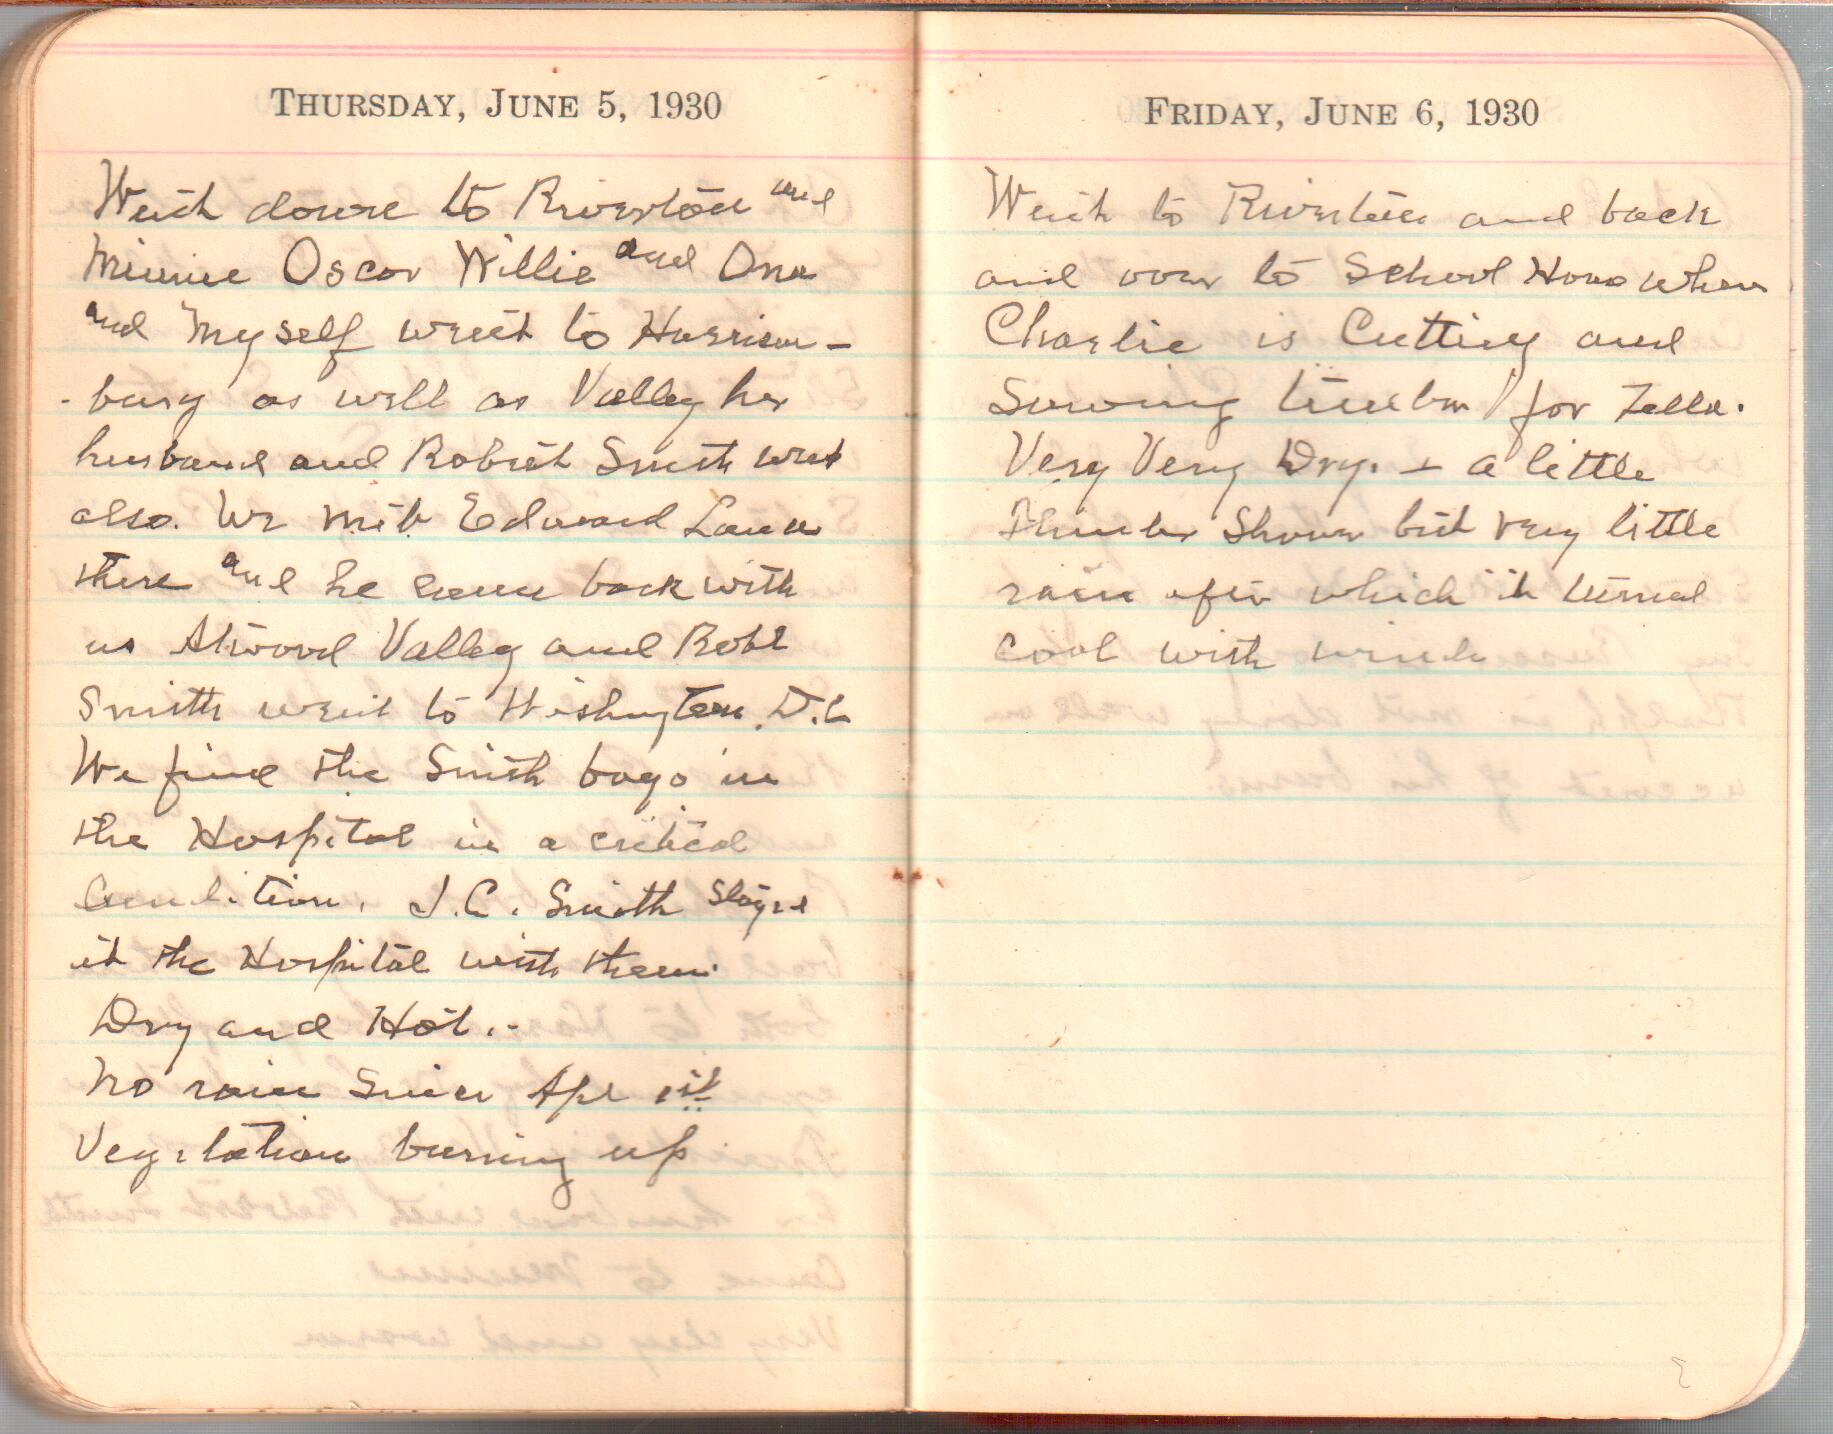 THURSDAY, JUNE 5, 1930
Went down to Riverton and
Minnie Oscar Willie and Ona
and Myself went to Harrison-
-burg as well as Valley her
husband and Robert Smith went
also. We met Edward
there and he came back with
us Atwood Valley and Robt
Smith went to Washington D.C
We find the Smith boys in
the Hospital in a critical
Condition. J.C. Smith Stayed
at the Hospital with them.
Dry and Hot.-
No rain Since Apr 1st
Vegetation burning up
FRIDAY, JUNE 6, 1930
Went to Riverton and back
and over to School House where
Charlie is Cutting and
Sawing timber for Zella.
Very Very Dry. - a little
Thunder Shower but very little
rain after which it turned
cool with wind